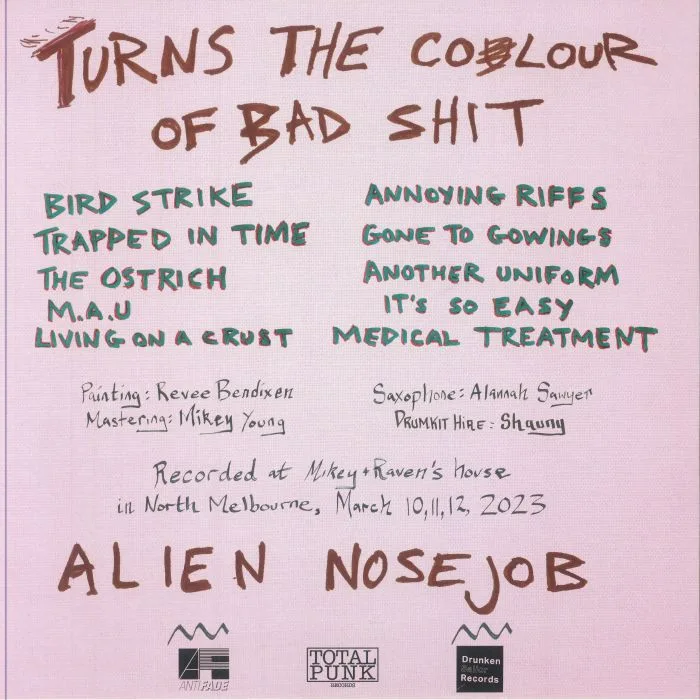 TURNS THE COLOUR
OF BAD SHIT
BIRD STRIKE
TRAPPED IN TIME
THE OSTRICH
M.A.U
LIVING ON A CRUST
ANNOYING RIFFS
GONE TO GOWINGS
ANOTHER UNIFORM
IT'S SO EASY
MEDICAL TREATMENT
Painting: Revee Bendixen
Mastering: Mikey Young
Saxophone: Alannah Sawyer
DRUMKIT HIRE: Shauny
Recorded at Mikey + Raven's house
in North Melbourne, March 10, 11, 12, 2023
ALIEN NOSEJOB
AF
ANTI FADE
TOTAL
PUNK
RECORDS
Drunken
Sailor
Records